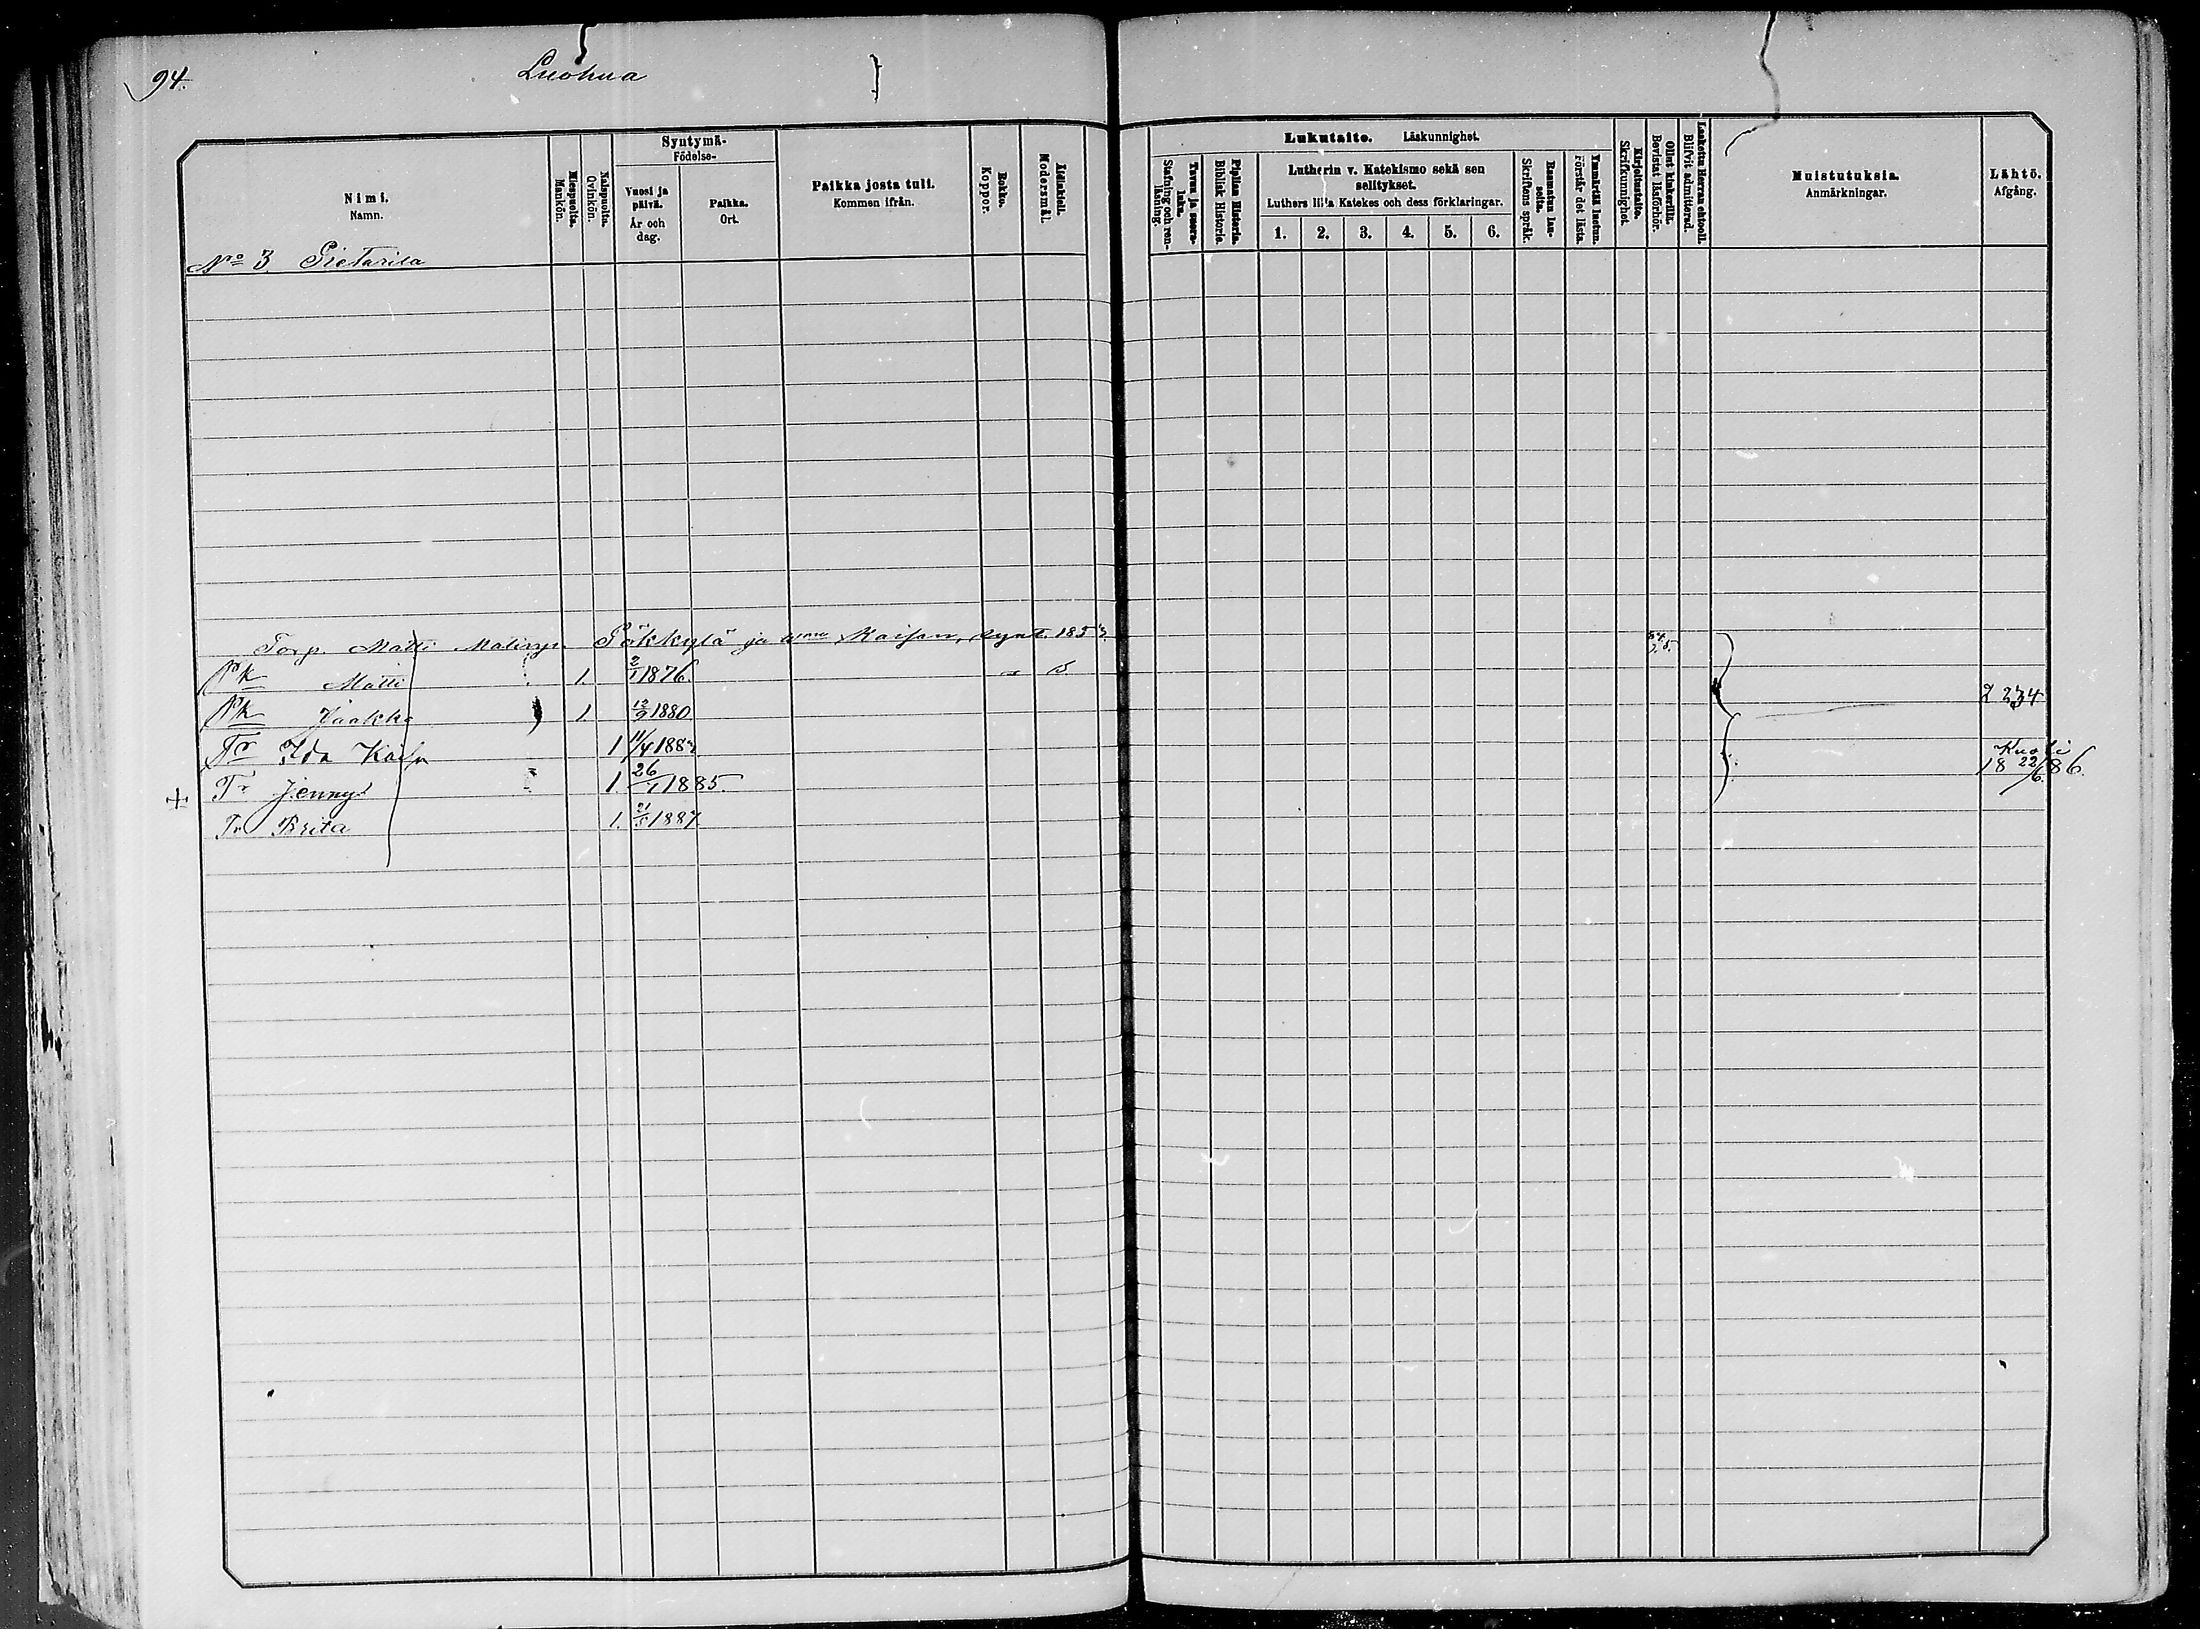 94.
Luohua
Nimi.
Namn.
Miespuolta.
Mankön.
Naispuolta.
Qvinkön.
Syntymä-
Födelse-
Vuosi ja päivä.
År och dag.
Paikka.
Ort.
Paikka josta tuli.
Kommen ifrån.
Rokko.
Koppor.
Äidinkieli.
Modersmål.
Lukutaito. Läskunnighet.
Tavuu ja suora-luku.
Stafning och ren-läsning.
Piplian Historia.
Biblisk Historie.
Lutherin v. Katekismo sekä sen
selitykset.
Luthers lilla Katekes och dess förklaringar.
1. 2. 3. 4. 5. 6.
Raamatun lau-seita.
Skriftens språk.
Ymmärtää luetun.
Förstår det lästa.
Kirjoitustaito.
Skrifkunnighet.
Ollut kinkerillä.
Bevistat läsförhör.
Laskettu Herran ehtooll.
Blifvit admitterad.
Muistutuksia.
Anmärkningar.
Lähtö.
Afgång.
No 3 Pietarila
Torp. Matti Matinp. Pökkylä ja Kaisan, synt. 185
Pk Matti 1. 2/1 1876.
Pk Jaakko 1. 12/9 1880 2 234
Tr Ida Kaisa 1 11/4 188
Kuoli
Tr Jenny 1. 26/1 1885. 18 22/6 86.
Tr Brita 1. 21/5 1887